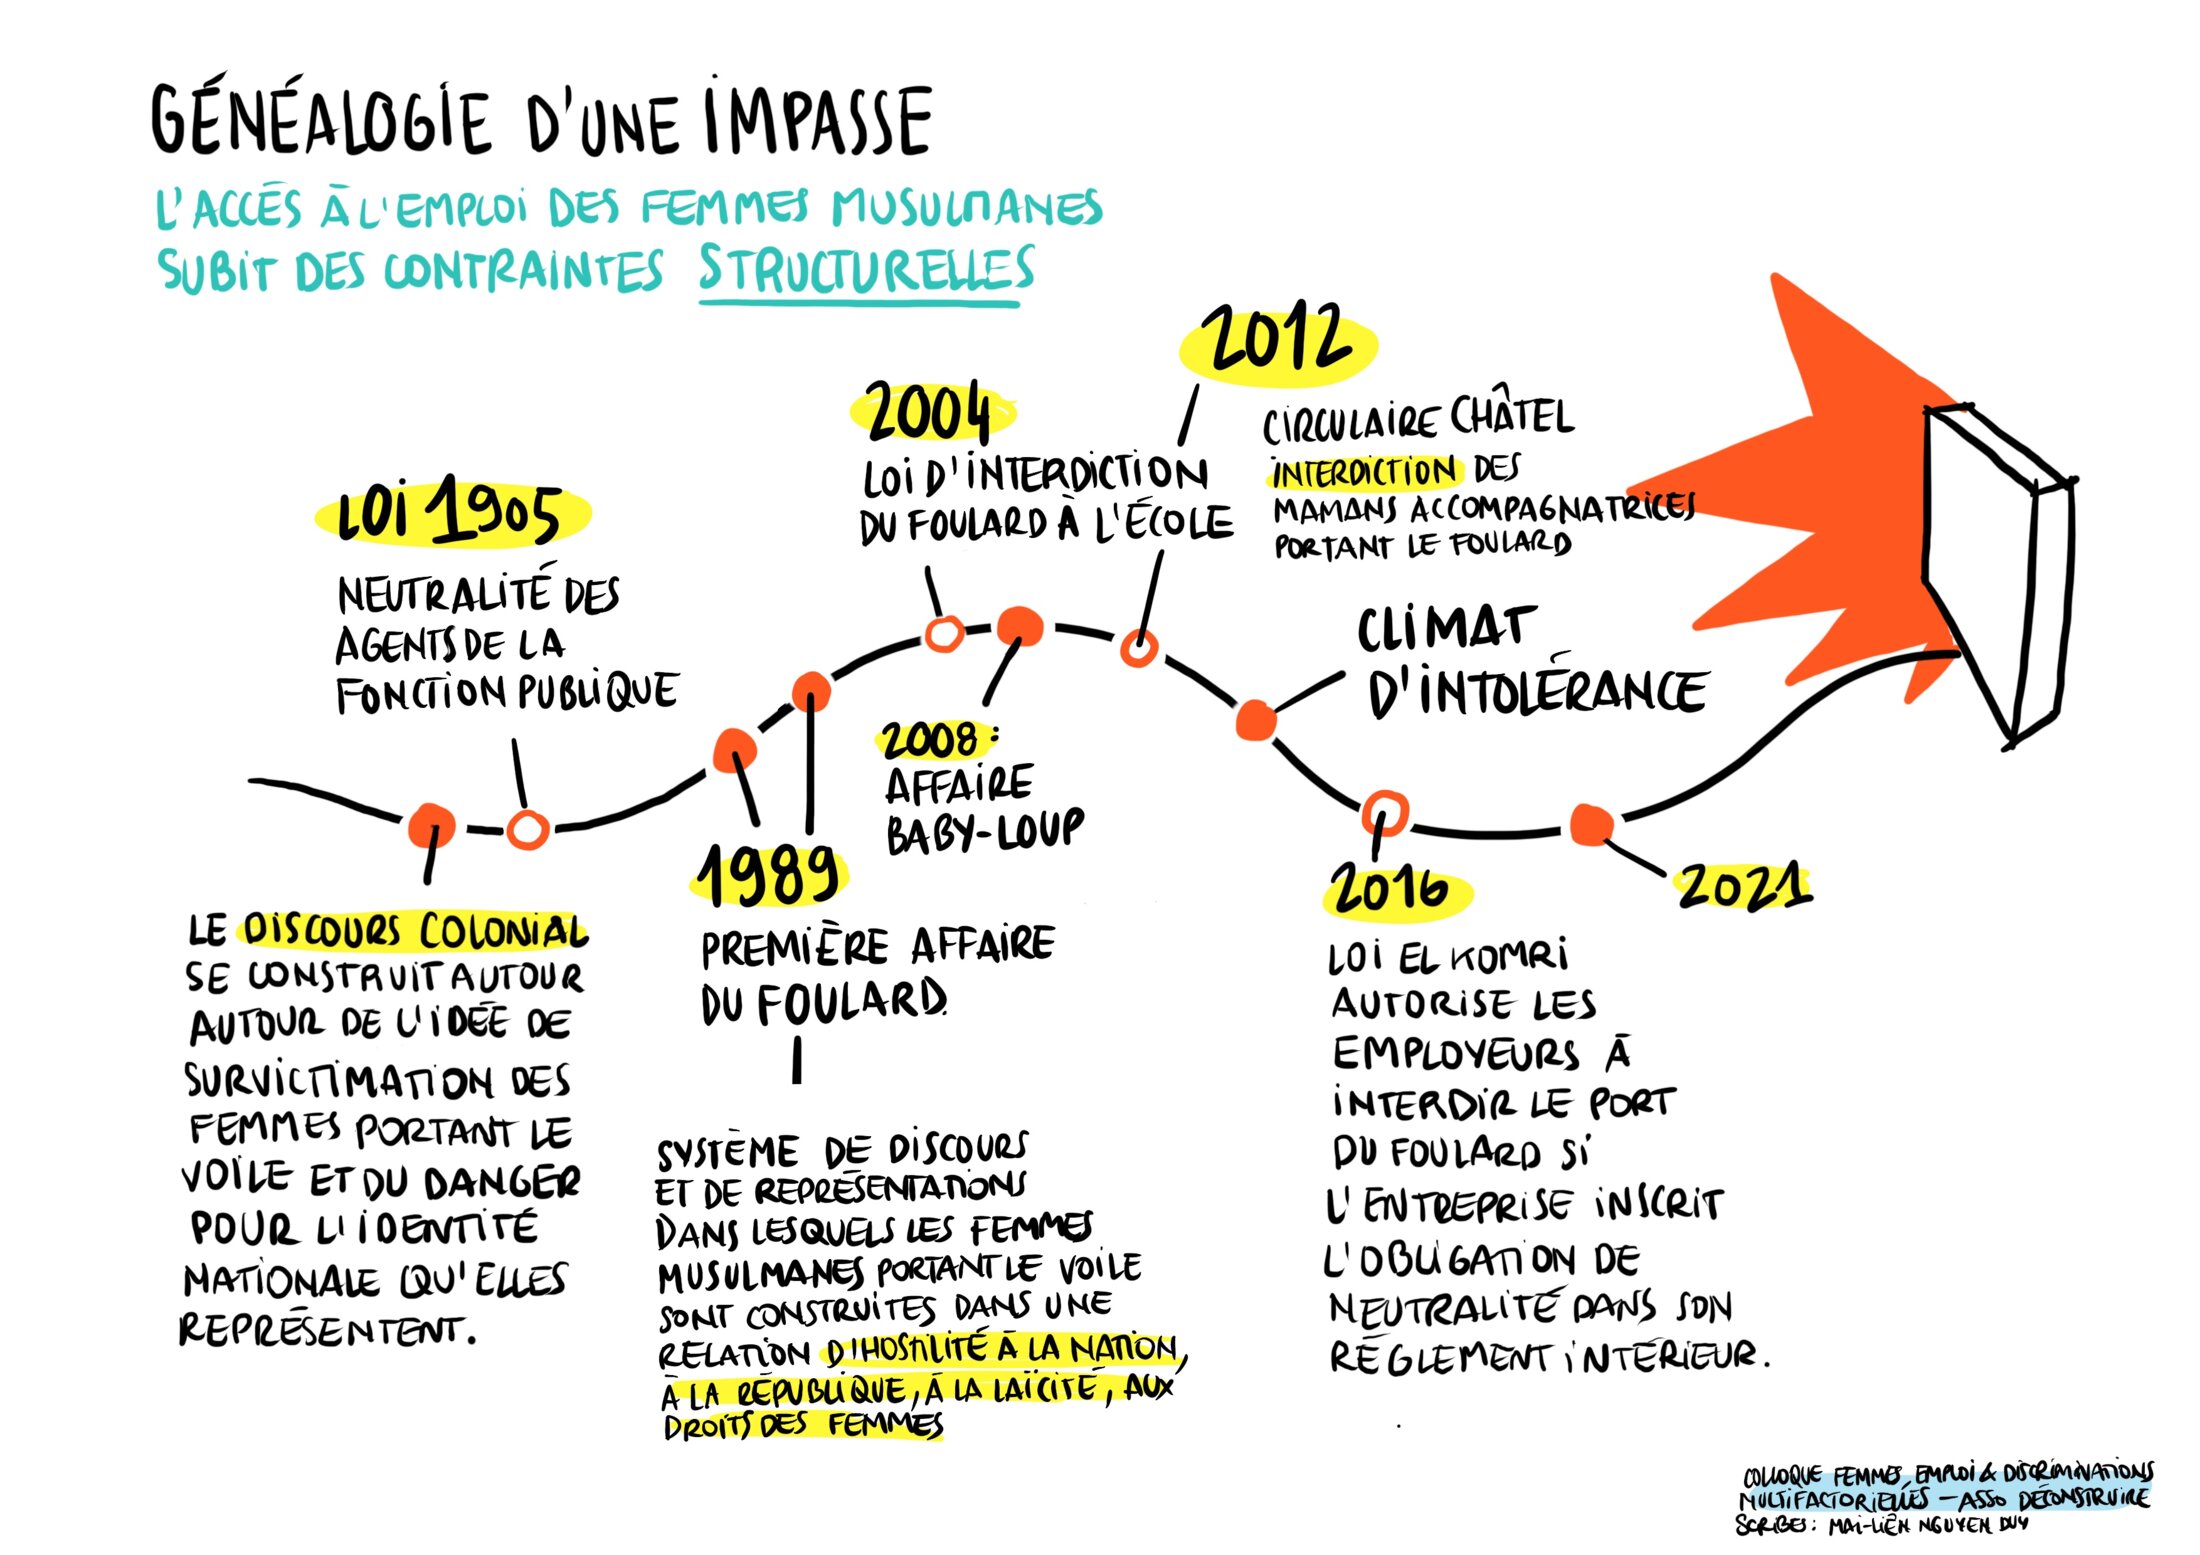 GÉNÉALOGIE D'UNE IMPASSE
L'ACCÉS À L'EMPLOI DES FEMMES MUSULMANES
SUBIT DES CONTRAINTES STRUCTURELLES
LOI 1905
NEUTRALITÉ DES
AGENTS DE LA
FONCTION PUBLIQUE
2004
LOI D'INTERDICTION
DU FOULARD À L'ÉCOLE
2012
CIRCULAIRE CHÂTEL
INTERDICTION DES
MAMANS ACCOMPAGNATRICES
PORTANT LE FOULARD
CLIMAT
D'INTOLÉRANCE
2008 :
AFFAIRE
BABY-LOUP
LE DISCOURS COLONIAL
SE CONSTRUIT AUTOUR
AUTOUR DE L'IDÉE DE
SURVICTIMATION DES
FEMMES PORTANT LE
VOILE ET DU DANGER
POUR L'IDENTITÉ
NATIONALE QU'ELLES
REPRÉSENTENT.
1989
PREMIÈRE AFFAIRE
DU FOULARD.
SYSTÈME DE DISCOURS
ET DE REPRÉSENTATIONS
DANS LESQUELS LES FEMMES
MUSULMANES PORTANT LE VOILE
SONT CONSTRUITES DANS UNE
RELATION D'HOSTILITÉ À LA NATION,
À LA RÉPUBLIQUE, À LA LAÏCITÉ, AUX
DROITS DES FEMMES
2016
LOI EL KOMRI
AUTORISE LES
EMPLOYEURS À
INTERDIR LE PORT
DU FOULARD SI
L'ENTREPRISE INSCRIT
L'OBLIGATION DE
NEUTRALITÉ DANS SON
RÉGLEMENT INTÉRIEUR.
2021
COLLOQUE FEMMES, EMPLOI & DISCRIMINATIONS
MULTIFACTORIELLES – ASSO DÉCONSTRUIRE
SCRIBES : MAI-LIÊN NGUYEN DUY